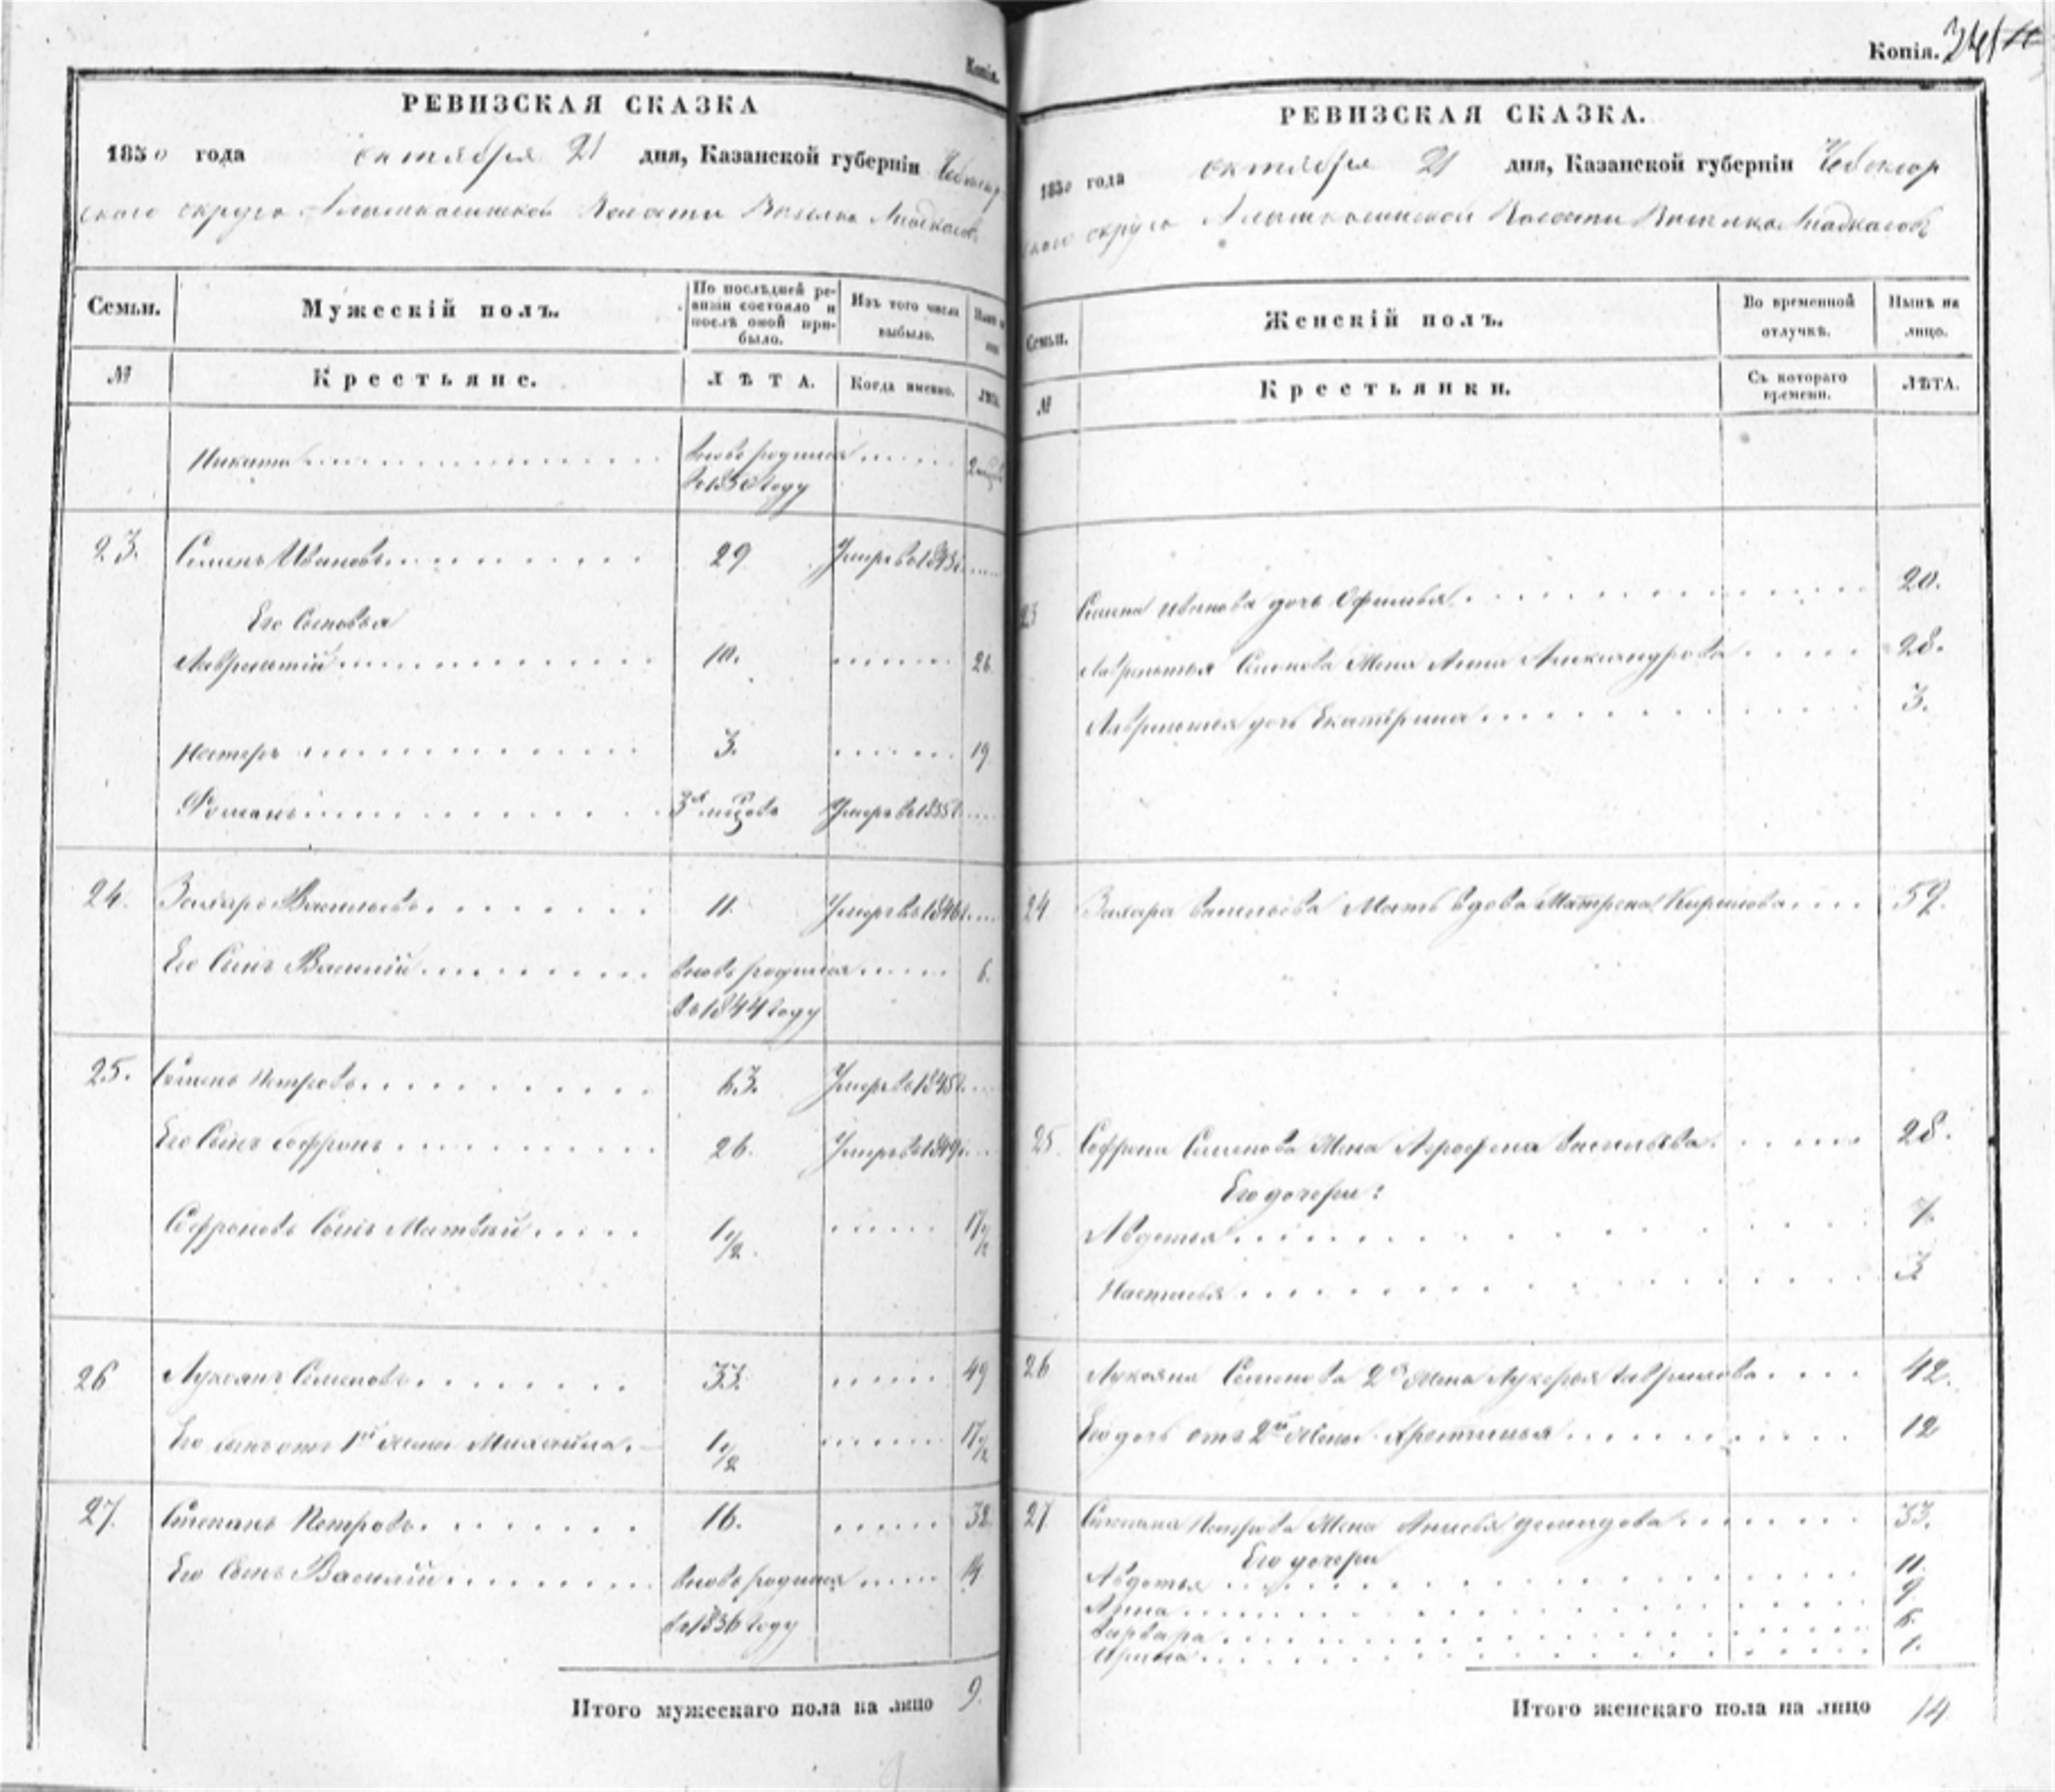 Копія.
РЕВИЗСКАЯ СКАЗКА
1850 года октября 21 дня, Казанской губерніи Чебоксар
скаго округа Волости
Семьи. Мужескій полъ. По послѣдней ревизіи состояло и послѣ оной прибыло. Изъ того числа выбыло.
№ Крестьяне. ЛѢТА. Когда именно. ЛѢТА.
Никита вновь родился 2
въ 1850 году
23. Семенъ Ивановъ 29 Умеръ въ 1843
Его Сыновья
Лаврентій 10. 26
Нестеръ 3. 19
Романъ 3 Умеръ въ 1835
24. Захаръ Васильевъ 11 Умеръ въ 1846
Его Сынъ Василій вновь родился 6.
въ 1844 году
25. Семенъ Петровъ 63. Умеръ въ 1845
Его Сынъ Софронъ 26. Умеръ въ 1849
Софроновъ Сынъ Матвѣй 1 1/2 17 1/2
26 Лукоянъ Семеновъ 33 49
Его сынъ отъ 1й жены Михайла 1 1/2 17 1/2
27. Степанъ Петровъ 16. 32
Его Сынъ Василій вновь родился 14
въ 1836 году
Итого мужескаго пола на лицо 9.
Копія.
РЕВИЗСКАЯ СКАЗКА.
1850 года октября 21 дня, Казанской губерніи Чебоксар
скаго округа Волости
Семьи. Женскій полъ. Во временной отлучкѣ. Нынѣ на лицо.
№ Крестьянки. Съ котораго времени. ЛѢТА.
23 Семена Иванова дочь Офимья 20.
Лаврентья Семенова Жена Анна Александрова 28.
Лаврентья дочь Екатерина 3.
24 Захара Васильева Мать вдова Матрена Кирилова 59.
25 Софрона Семенова Жена Агрофена Васильева 28.
Его дочери:
Авдотья 7.
Настасья 3
26 Лукояна Семенова 2я жена Лукерья Гаврилова 42.
Его дочь отъ 2й жены 12
27 Степана Петрова Жена Анисья Демидова 33.
Его дочери
Авдотья 11.
Анна 9
Варвара 6.
Ирина 1.
Итого женскаго пола на лицо 14